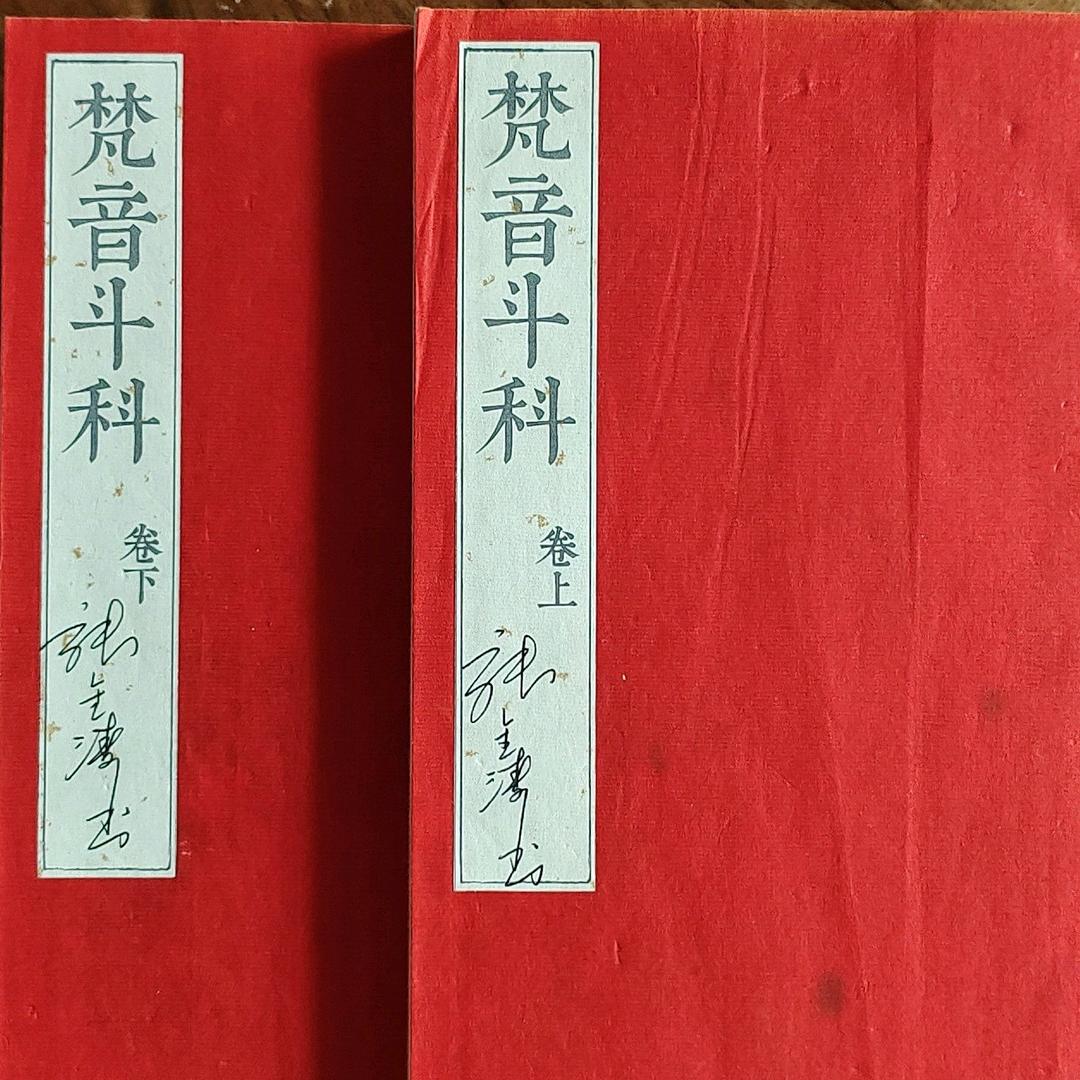 梵音斗科
卷上
張金濤书
梵音斗科
卷下
張金濤书